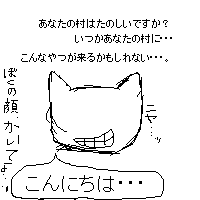 あなたの村はたのしいですか？
いつかあなたの村に・・・
こんなやつが来るかもしれない・・・。
ニヤ…ッ
ぼくの顔、かーしてよ…。
こんにちは・・・